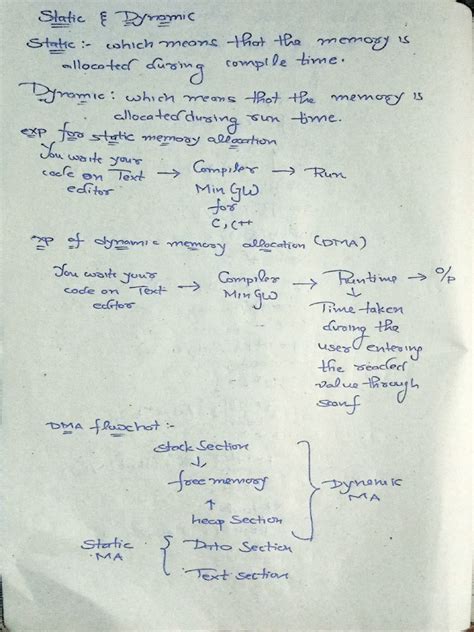 Static & Dynamic
Static :- which means that the memory is
allocated during compile time.
Dynamic : which means that the memory is
allocated during run time.
exp for static memory allocation
You write your code on Text editor → Compiler MinGW for C, C++ → Run
exp of dynamic memory allocation (DMA)
You write your code on Text editor → Compiler MinGW → Runtime → O/p
↓
Time taken
during the
user entering
the readed
value through
scanf
DMA flowchot :-
stack Section
↓
free memory
↑
heap Section
Dynamic MA
Static MA
Data Section
Text section